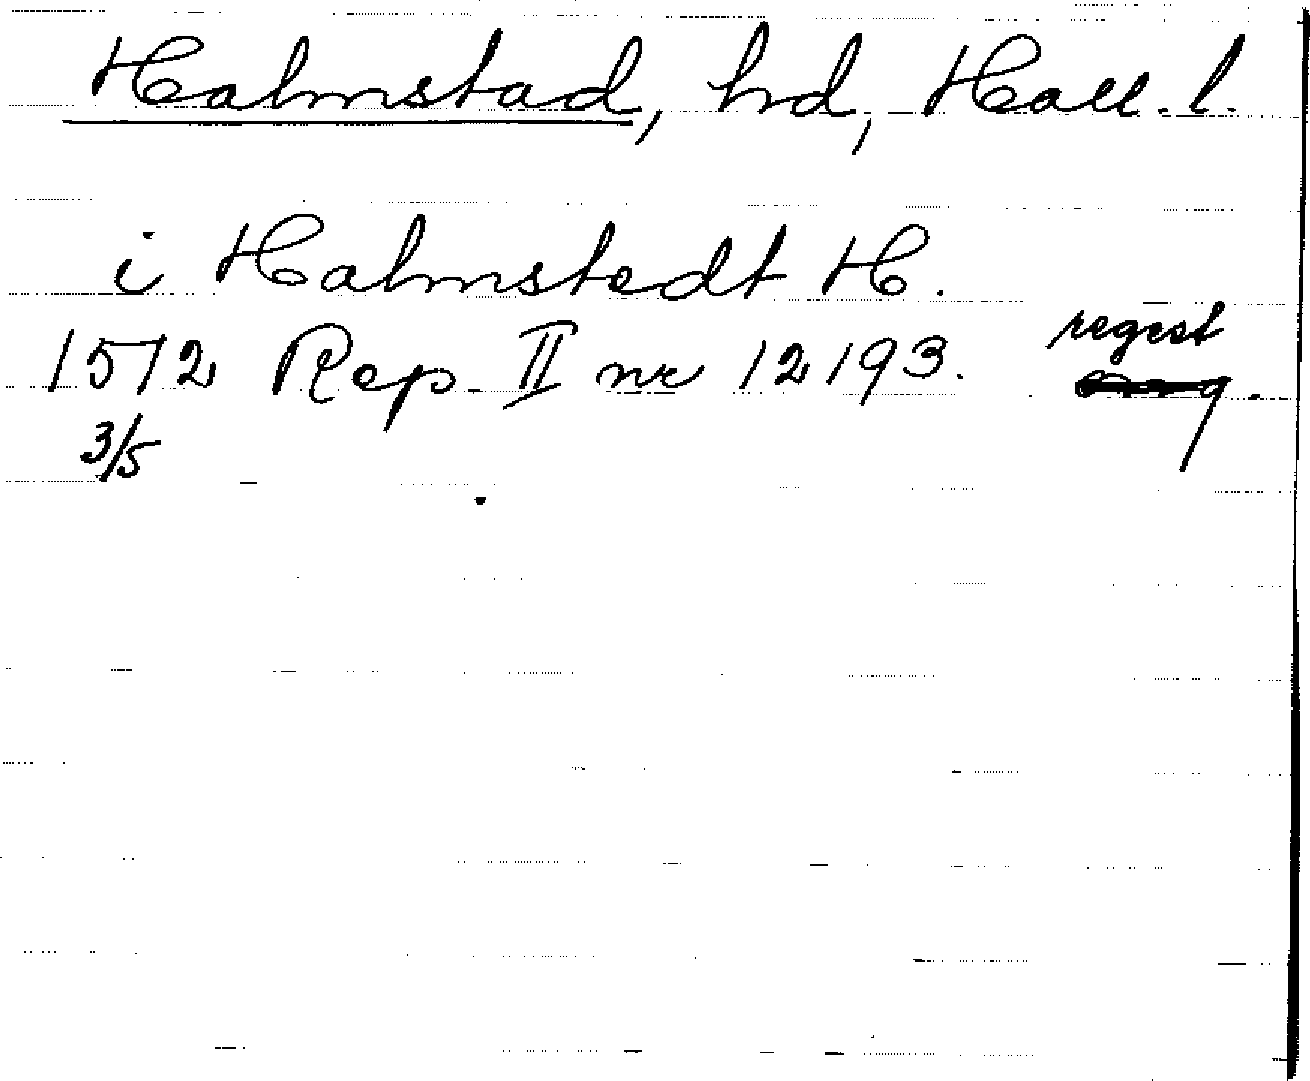 Halmstad, hd, Hall. l.
i Halmstedt H.
1572 Rep. II nr 12193. regest
3/5